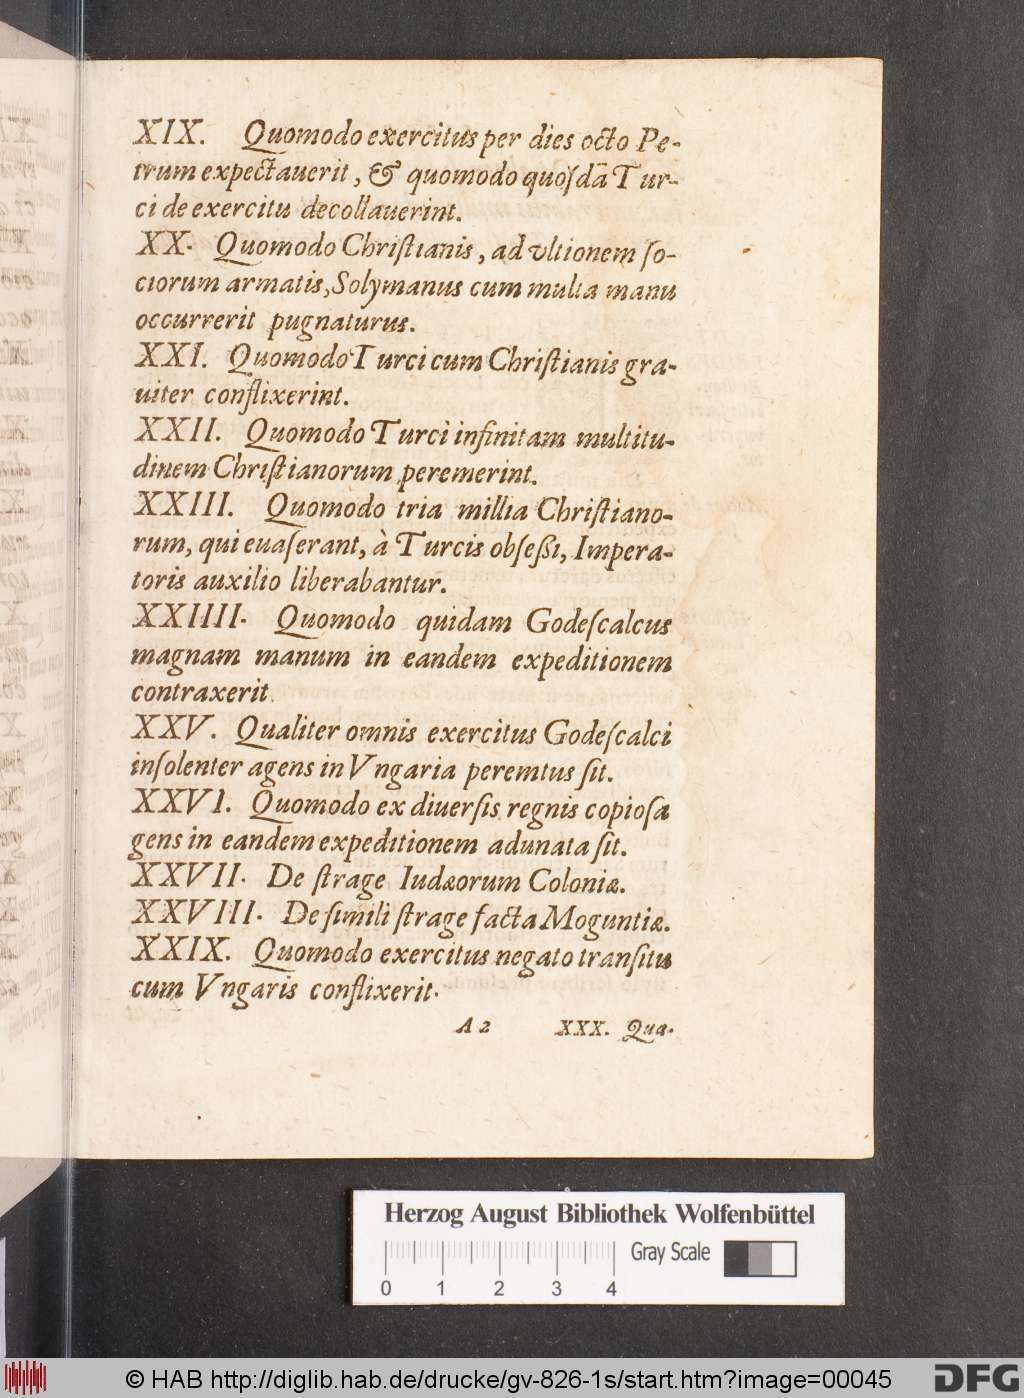 XIX. Quomodo exercitus per dies octo Pe-
trum expectauerit, & quomodo quoſdā Tur-
ci de exercitu decollauerint.
XX. Quomodo Chriſtianis, ad vltionem ſo-
ciorum armatis, Solymanus cum multa manu
occurrerit pugnaturus.
XXI. Quomodo Turci cum Chriſtianis gra-
uiter conflixerint.
XXII. Quomodo Turci infinitam multitu-
dinem Chriſtianorum peremerint.
XXIII. Quomodo tria millia Chriſtiano-
rum, qui euaſerant, à Turcis obſeßi, Impera-
toris auxilio liberabantur.
XXIIII. Quomodo quidam Godeſcalcus
magnam manum in eandem expeditionem
contraxerit.
XXV. Qualiter omnis exercitus Godeſcalci
inſolenter agens in Vngaria peremtus ſit.
XXVI. Quomodo ex diuerſis regnis copioſa
gens in eandem expeditionem adunata ſit.
XXVII. De ſtrage Iudæorum Coloniæ.
XXVIII. De ſimili ſtrage facta Moguntiæ.
XXIX. Quomodo exercitus negato tranſitu
cum Vngaris conflixerit.
A 2 XXX. Qua-
Herzog August Bibliothek Wolfenbüttel
Gray Scale
0 1 2 3 4
© HAB http://diglib.hab.de/drucke/gv-826-1s/start.htm?image=00045
DFG